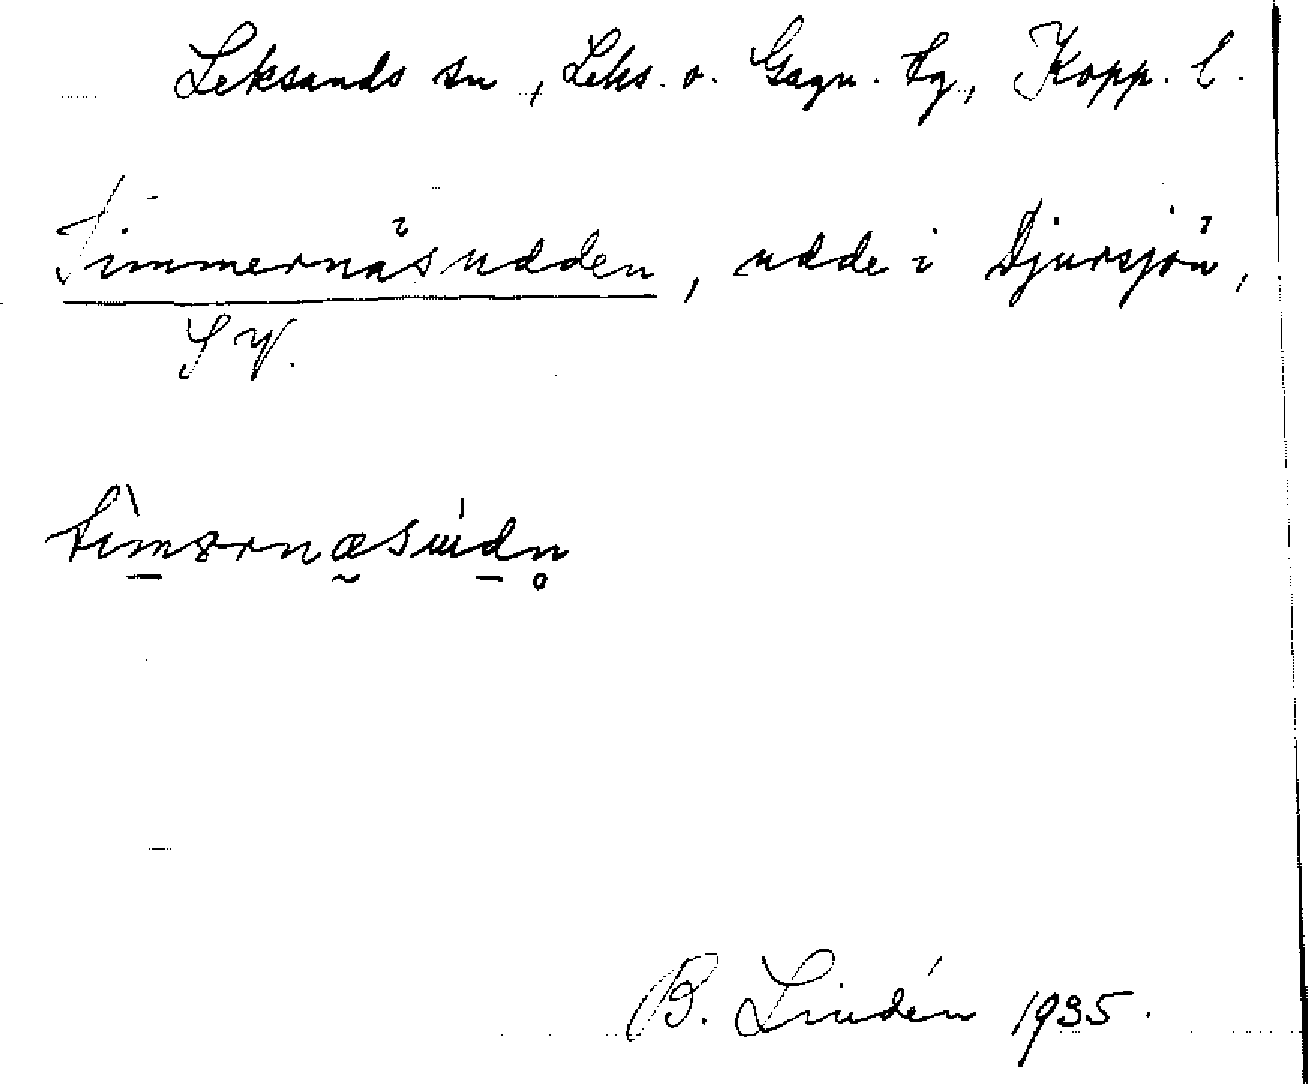 Leksands sn, Leks. o. Gagn. tg, Kopp. l.
Timmernäsudden, udde i Djursjön,
SV.
B. Lindén 1935.